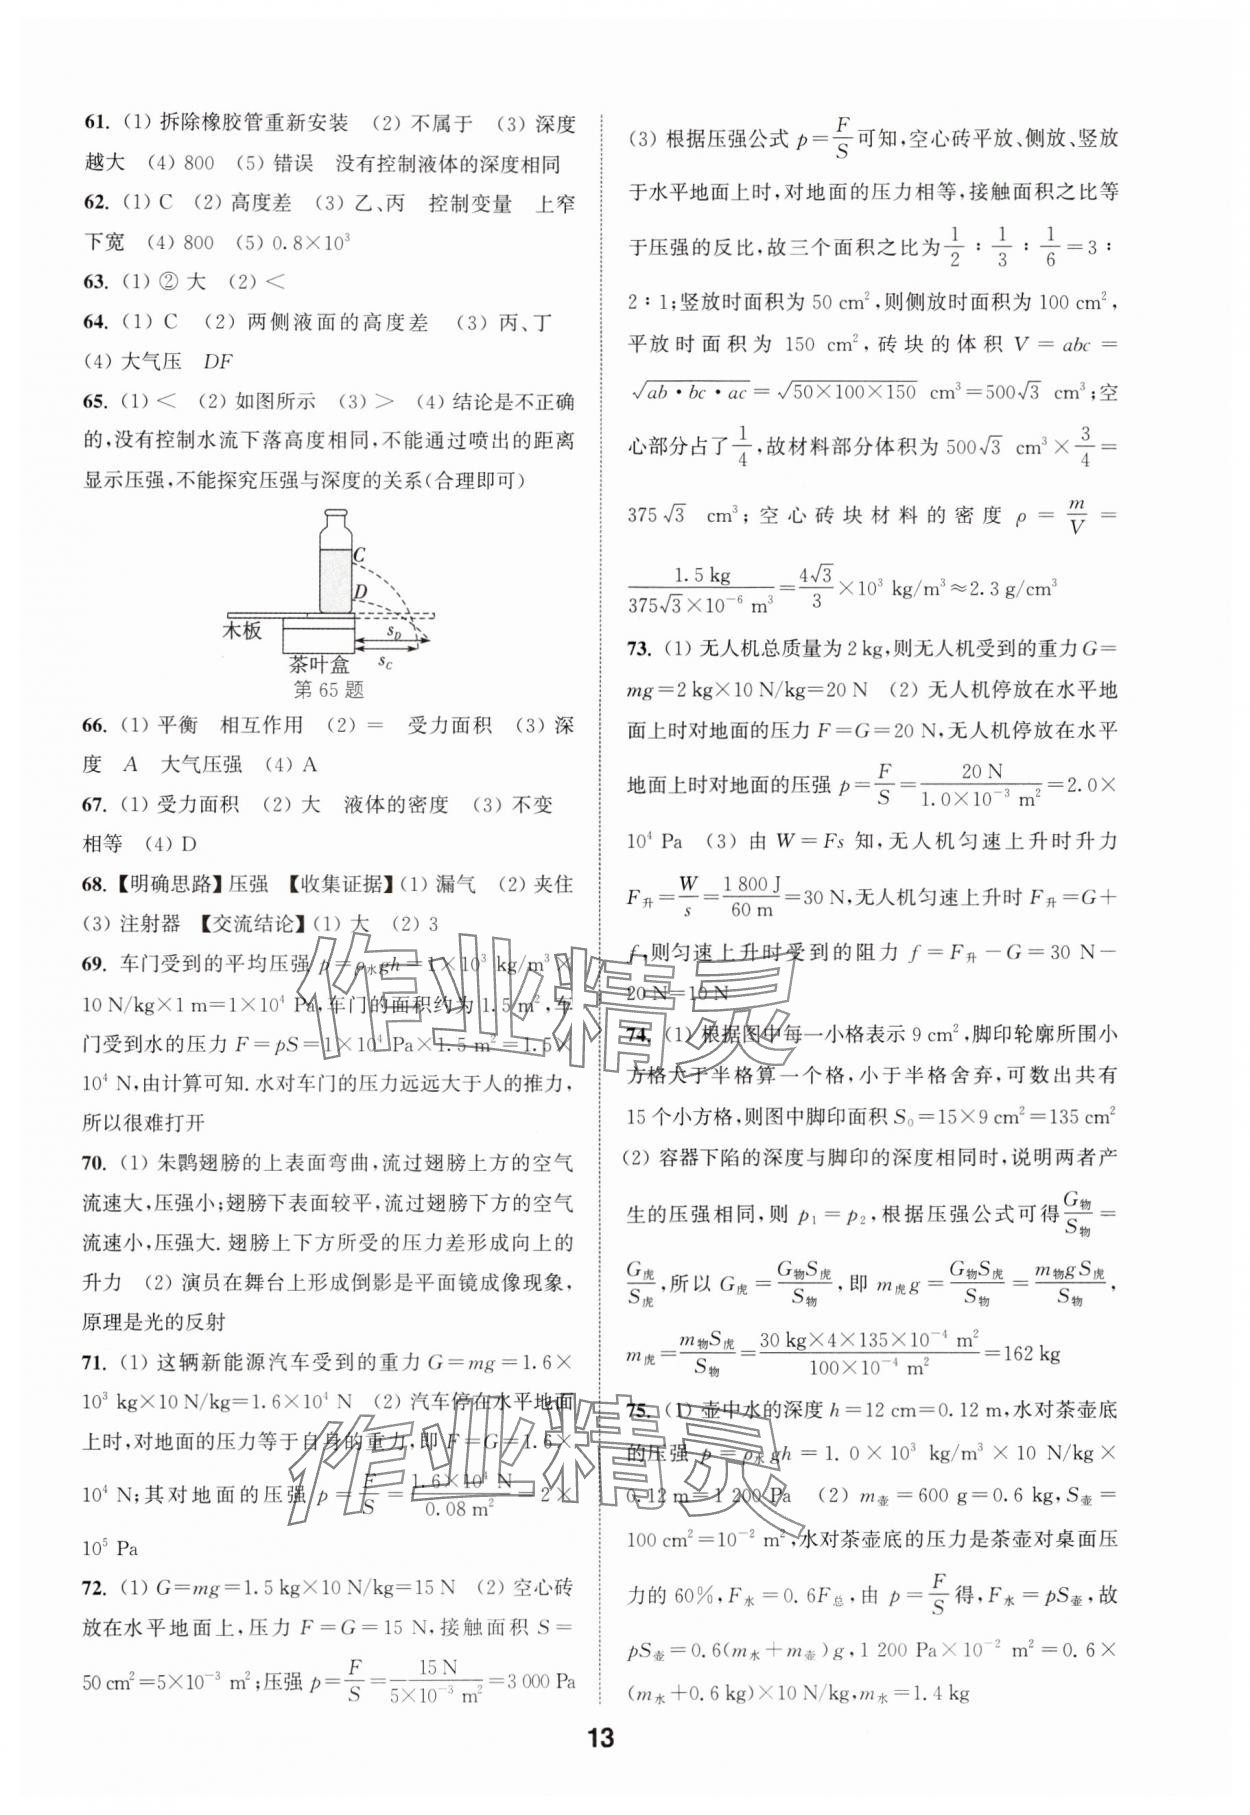 61. (1) 拆除橡胶管重新安装 (2) 不属于 (3) 深度
越大 (4) 800 (5) 错误 没有控制液体的深度相同
62. (1) C (2) 高度差 (3) 乙、丙 控制变量 上窄
下宽 (4) 800 (5) 0.8×10³
63. (1) ② 大 (2) <
64. (1) C (2) 两侧液面的高度差 (3) 丙、丁
(4) 大气压 DF
65. (1) < (2) 如图所示 (3) > (4) 结论是不正确
的,没有控制水流下落高度相同,不能通过喷出的距离
显示压强,不能探究压强与深度的关系(合理即可)
C
D
木板
s_D
茶叶盒
s_C
第 65 题
66. (1) 平衡 相互作用 (2) = 受力面积 (3) 深
度 A 大气压强 (4) A
67. (1) 受力面积 (2) 大 液体的密度 (3) 不变
相等 (4) D
68.【明确思路】压强 【收集证据】(1) 漏气 (2) 夹住
(3) 注射器 【交流结论】(1) 大 (2) 3
69. 车门受到的平均压强 p=ρ水gh=1×10³ kg/m³×
10 N/kg×1 m=1×10⁴ Pa,车门的面积约为 1.5 m²,车
门受到水的压力 F=pS=1×10⁴ Pa×1.5 m²=1.5×
10⁴ N,由计算可知.水对车门的压力远远大于人的推力,
所以很难打开
70. (1) 朱鹮翅膀的上表面弯曲,流过翅膀上方的空气
流速大,压强小;翅膀下表面较平,流过翅膀下方的空气
流速小,压强大.翅膀上下方所受的压力差形成向上的
升力 (2) 演员在舞台上形成倒影是平面镜成像现象,
原理是光的反射
71. (1) 这辆新能源汽车受到的重力 G=mg=1.6×
10³ kg×10 N/kg=1.6×10⁴ N (2) 汽车停在水平地面
上时,对地面的压力等于自身的重力,即 F=G=1.6×
10⁴ N;其对地面的压强 p=F/S=1.6×10⁴ N/0.08 m²=2×
10⁵ Pa
72. (1) G=mg=1.5 kg×10 N/kg=15 N (2) 空心砖
放在水平地面上,压力 F=G=15 N,接触面积 S=
50 cm²=5×10⁻³ m²;压强 p=F/S=15 N/5×10⁻³ m²=3 000 Pa
(3) 根据压强公式 p=F/S可知,空心砖平放、侧放、竖放
于水平地面上时,对地面的压力相等,接触面积之比等
于压强的反比,故三个面积之比为1/2∶1/3∶1/6=3∶
2∶1;竖放时面积为 50 cm²,则侧放时面积为 100 cm²,
平放时面积为 150 cm²,砖块的体积 V=abc=
√(ab·bc·ac)=√(50×100×150) cm³=500√3 cm³;空
心部分占了1/4,故材料部分体积为 500√3 cm³×3/4=
375√3 cm³;空心砖块材料的密度 ρ=m/V=
1.5 kg/375√3×10⁻⁶ m³=4√3/3×10³ kg/m³≈2.3 g/cm³
73. (1) 无人机总质量为 2 kg,则无人机受到的重力 G=
mg=2 kg×10 N/kg=20 N (2) 无人机停放在水平地
面上时对地面的压力 F=G=20 N,无人机停放在水平
地面上时对地面的压强 p=F/S=20 N/1.0×10⁻³ m²=2.0×
10⁴ Pa (3) 由 W=Fs 知,无人机匀速上升时升力
F升=W/s=1 800 J/60 m=30 N,无人机匀速上升时 F升=G+
f,则匀速上升时受到的阻力 f=F升-G=30 N-
20 N=10 N
74. (1) 根据图中每一小格表示 9 cm²,脚印轮廓所围小
方格大于半格算一个格,小于半格舍弃,可数出共有
15 个小方格,则图中脚印面积 S₀=15×9 cm²=135 cm²
(2) 容器下陷的深度与脚印的深度相同时,说明两者产
生的压强相同,则 p₁=p₂,根据压强公式可得G物/S物=
G虎/S虎,所以 G虎=G物S虎/S物,即 m虎g=G物S虎/S物=m物gS虎/S物,
m虎=m物S虎/S物=30 kg×4×135×10⁻⁴ m²/100×10⁻⁴ m²=162 kg
75. (1) 壶中水的深度 h=12 cm=0.12 m,水对茶壶底
的压强 p=ρ水gh=1.0×10³ kg/m³×10 N/kg×
0.12 m=1 200 Pa (2) m壶=600 g=0.6 kg,S壶=
100 cm²=10⁻² m²,水对茶壶底的压力是茶壶对桌面压
力的 60%,F水=0.6F总,由 p=F/S得,F水=pS壶,故
pS壶=0.6(m水+m壶)g,1 200 Pa×10⁻² m²=0.6×
(m水+0.6 kg)×10 N/kg,m水=1.4 kg
13
作业精灵
作业精灵